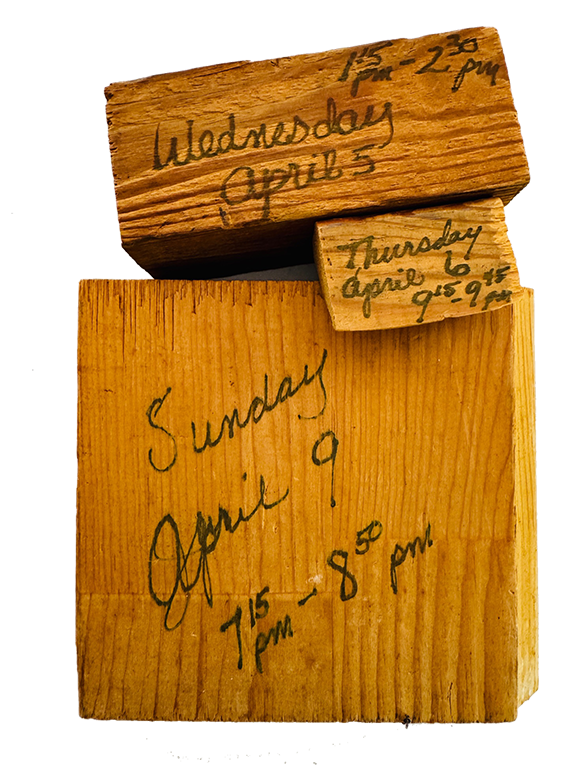 1:15 pm - 2:30 pm
Wednesday
April 5
Thursday
april 6
9:15 - 9:45 pm
Sunday
April 9
7:15 pm - 8:50 pm